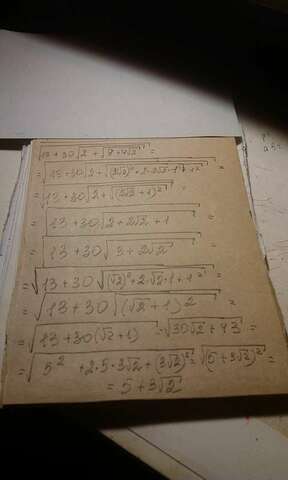 √(13+30√(2+√(9+4√2))) =
= √(13+30√(2+√((2√2)²+2·2√2·1+1²))) =
= √(13+30√(2+√((2√2+1)²))) =
= √(13+30√(2+2√2+1)) =
= √(13+30√(3+2√2)) =
= √(13+30√((√2)²+2·√2·1+1²)) =
= √(13+30√((√2+1)²)) =
= √(13+30(√2+1)) = √(30√2+43) =
= √(5²+2·5·3√2+(3√2)²) = √((5+3√2)²) =
= 5+3√2